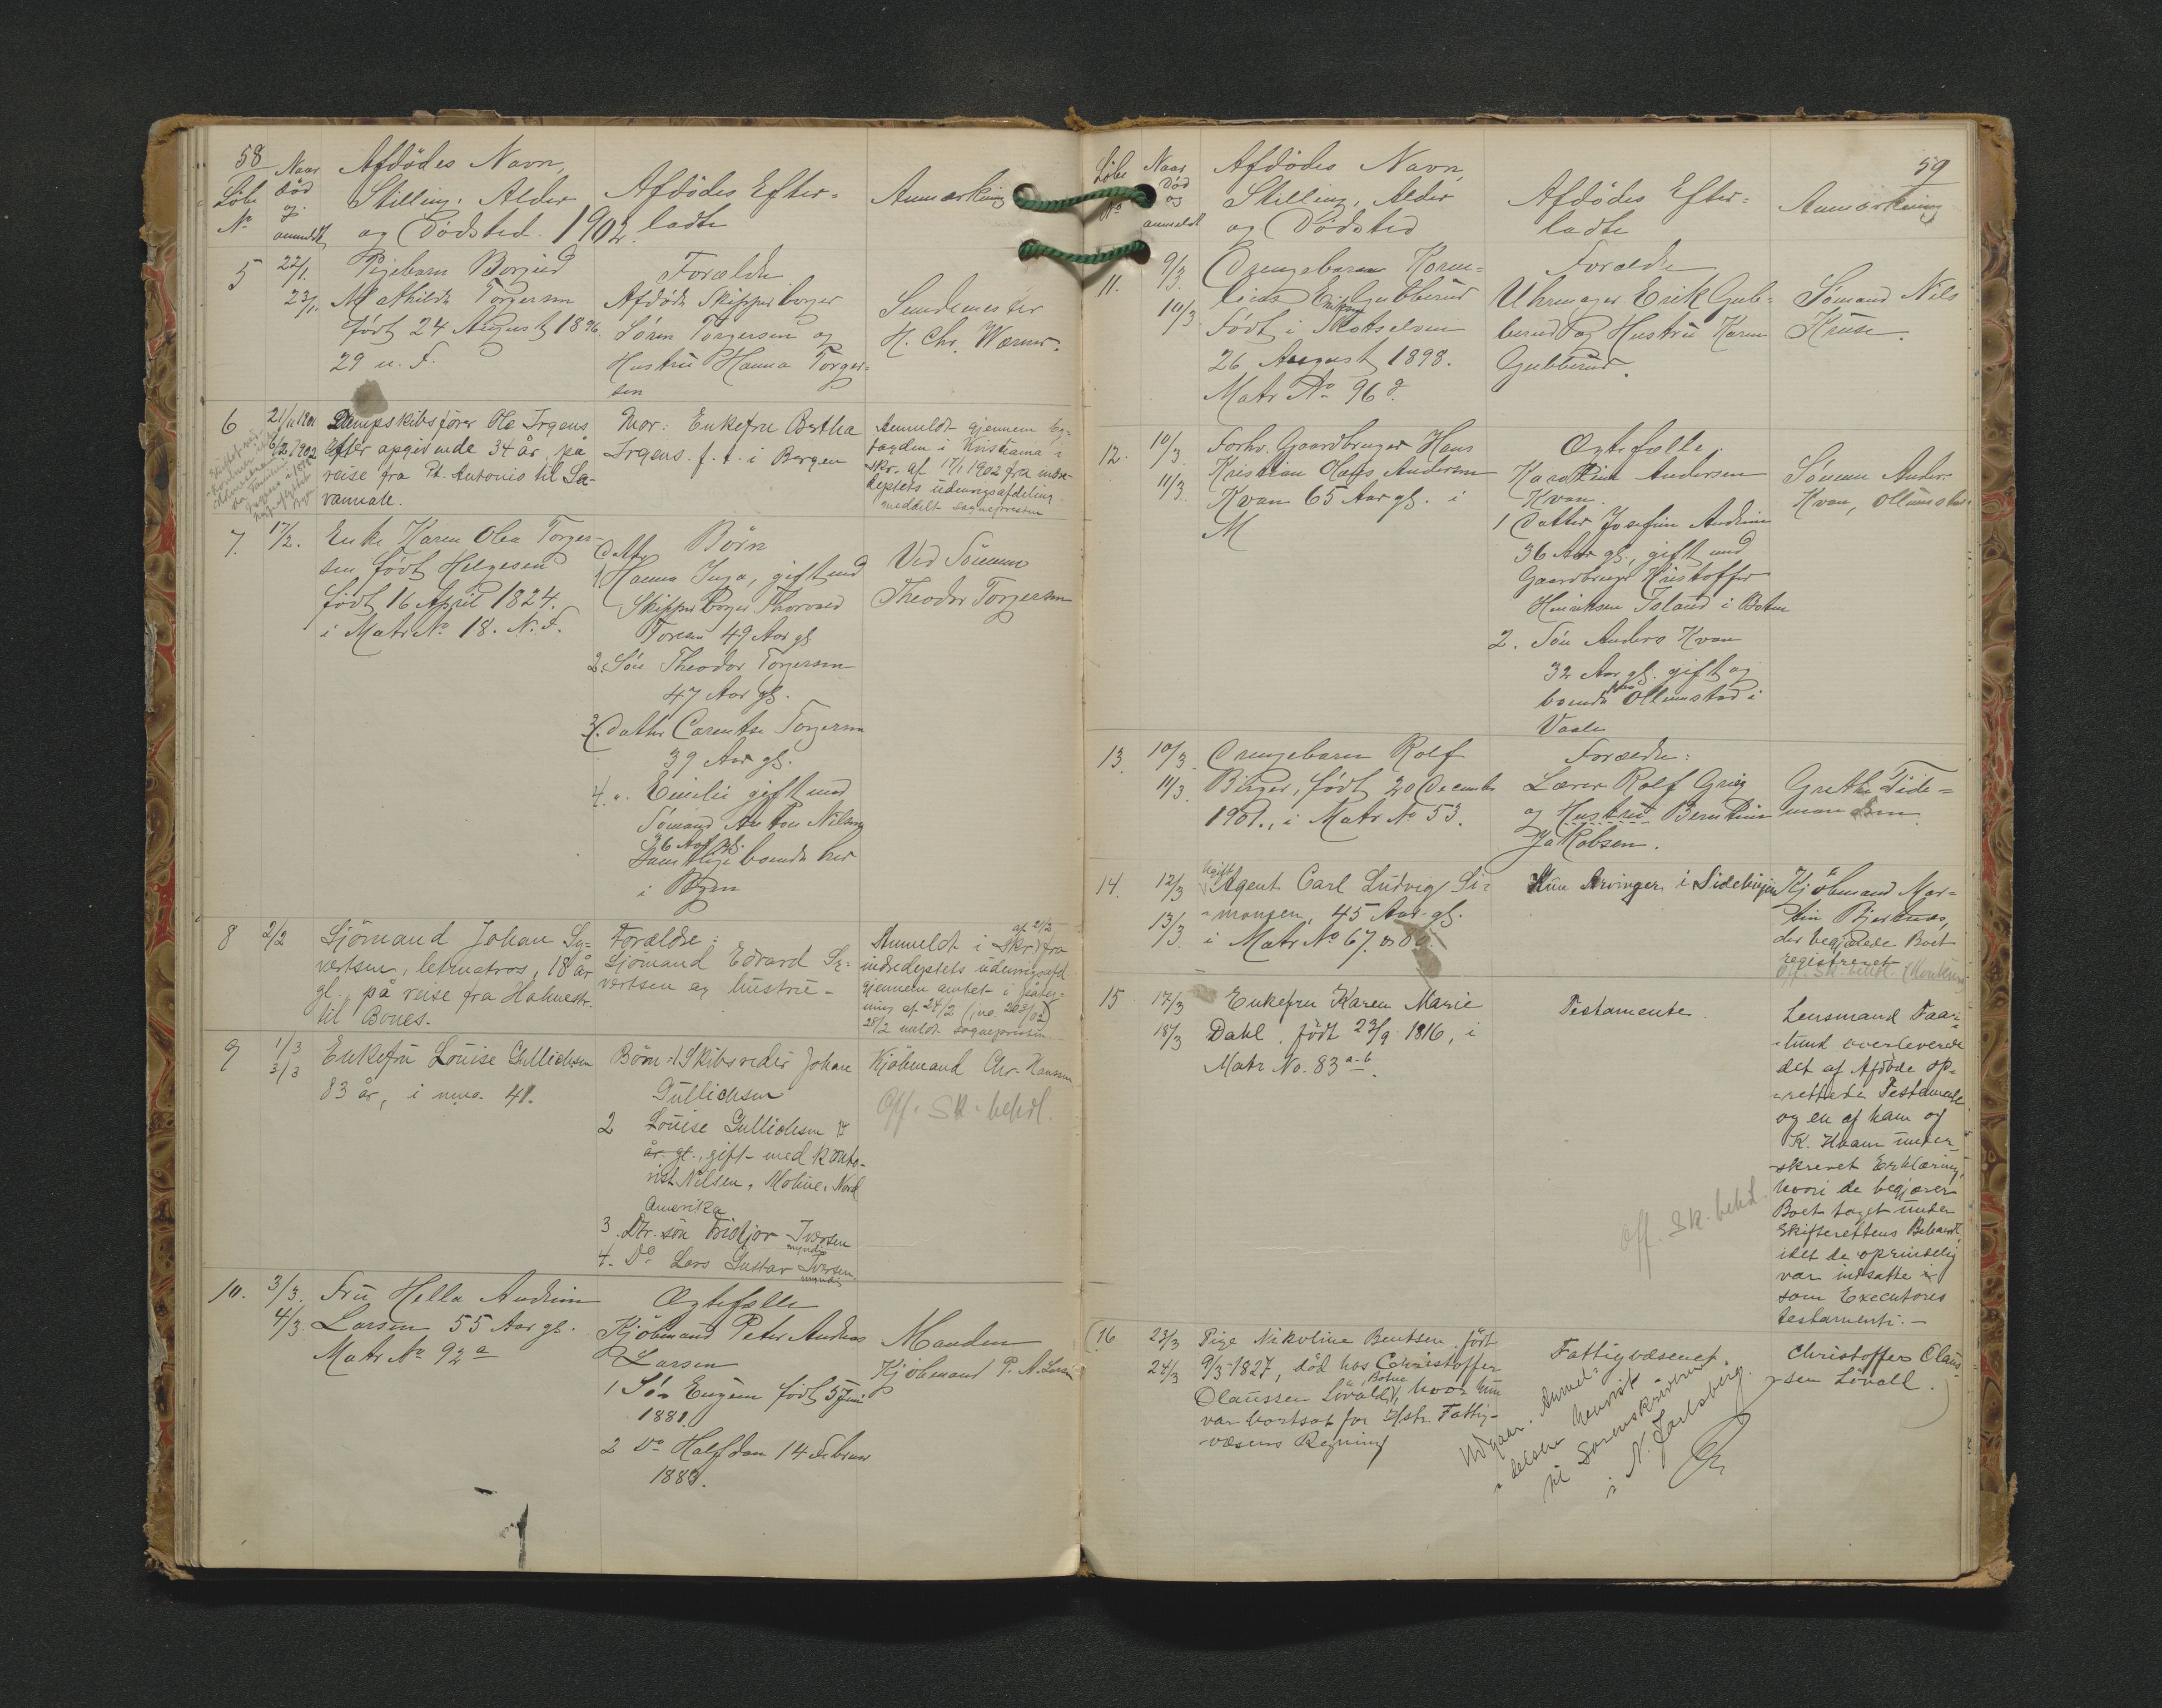 58
Löbe
No
Naar
död
og
anmeldt
Afdödes Navn,
Stilling, Alder
og Dödsted 1902.
Afdödes Efter-
ladte
Anmærkning
5
22/1.
23/1.
Pigebarn Borgild
Mathilde Torgersen
född 24 August 1896
29 n. F.
Forældre
Afdöde Skipperborger
Sören Torgersen og
Hustru Hanna Torger-
sen
Sendemester
H. Chr. Warmer.
6
21/11 1901
6/2 1902
Dampskibsförer Ole Irgens
efter opgivende 34 år, på
reise fra Pt. Antonio til Sa-
vannah.
Mor: Enkefru Bertha
Irgens. f. t. i Bergen
Anmeldt gjennem By-
fogden i Kristiania i
skr. af 17/1 1902 fra indre-
deptets udenrigsafdeling.
meddelt sognepresten
7.
17/2.
Enke Karen Olea Torger-
sen född Helgesen
född 16 April 1824.
i Matr No 18. N. F.
Börn
Datter
1. Hanna Inga, gift med
Skipperborger Thorvald
Foresen 49 Aar gl
2. Sön Theodor Torgersen
47 Aar gl.
3. Datter Carentse Torgersen
39 Aar gl.
4. " Emilie gift med
Sömand Anton Nilsen
36 Aar gl.
Samtlige boende her
i Byen
Ved Sönnen
Theodor Torgersen
8
2/2
Sjömand Johan Sy-
vertsen, letmatros, 18 år
gl., på reise fra Holmestr.
til Bones.
Forældre:
Sjömand Edvard Sy-
vertsen og hustru -
af 21/2
Anmeldt i skr. fra
indredeptets udenrigsafd
gjennem amtet i påteg-
ning af 24/2 (jno. 203/02)
28/2 meldt sognepresten
9
1/3
3/3
Enkefru Louise Gullichsen
83 år, i mno. 41.
Börn: 1 Skibsreder Johan
Gullichsen
2 Louise Gullichsen
år gl., gift med konto-
rist Nilsen, Moline, Nord
Amerika
3. Dtr. sön Fridtjor Iversen
myndig
4. Do Lars Gustav Iversen
myndig
Kjöbmand Chr. Hansen
Off. Sk. behdl.
10.
3/3.
4/3.
Fru Hella Andrine
Larsen 55 Aar gl.
Matr No 92 a
Ægtefælle
Kjöbmand Peter Andreas
Larsen
1 Sön Eugen född 5 Juni
1881.
2 Do Halfdan 14 Februar
1889.
Manden
Kjöbmand P. A. Larsen
59
Löbe
No
Naar
Död
og
anmeldt
Afdödes Navn,
Stilling, Alder
og Dödsted
Afdödes Efter-
ladte
Anmærkning
11.
9/3.
10/3
Drengebarn Korne-
lius Eriksen Gubberud
Född i Skotselven
26 August 1898.
Matr No 96 d.
Forældre
Uhrmager Erik Gub-
berud og Hustru Karen
Gubberud.
Sömand Nils
Kruse.
12.
10/3.
11/3.
Forhv. Gaardbruger Hans
Kristian Andersen
Kvan 65 Aar gl. i
M
Ægtefælle.
Karoline Andersen
Kvan.
1 Datter Josefine Andrine
36 Aar gl., gift med
Gaardbruger Kristoffer
Henriksen Foland i Botne
2. Sön Anders Kvan
32 Aar gl. gift og
boende Ollumstad i
Vaale
Sönnen Anders
Kvan, Ollumstad.
13.
10/3.
11/3.
Drengebarn Rolf
Birger, född 20 December
1901., i Matr No 53.
Forældre:
Lærer Rolf Grig
og Hustru Berntine
Jakobsen.
Grethe Tide-
mandsen
14.
12/3
13/3.
Ugift
Agent Carl Ludvig Si-
monsen, 45 Aar gl.
i Matr No 67. & 80.
Kun Arvinger i Sidelinjen
Kjöbmand Mar-
tin Bjertnæs,
der begjærede Boet
registreret
Off. Sk. behdl.
15
17/3
18/3
Enkefru Karen Marie
Dahl. född 23/9 1816, i
Matr No. 83 a-b.
Testamente.
Off. Sk. behdl.
Lensmand Faar-
tund overleverede
det af Afdöde op-
rettede Testamente
og en af ham og
K. Hvam under-
skrevet Erklæring,
hvori de begjærer
Boet taget under
Skifterettens Behandl.
idet de oprindelig
var indsatte
som Executores
testamenti. -
16
23/3
24/3
Pige Nikoline Bentsen, född
9/3 1827, död hos Christoffer
Olaussen Lövald i Botne, hvor hun
var bortsat for H/str. Fattig-
væsens Regning
Fattigvæsenet.
Udgaar. Anmel-
delsen henvist
til Sorenskriveren
i N. Jarlsberg.
Christoffer Olaus-
sen Lövall.